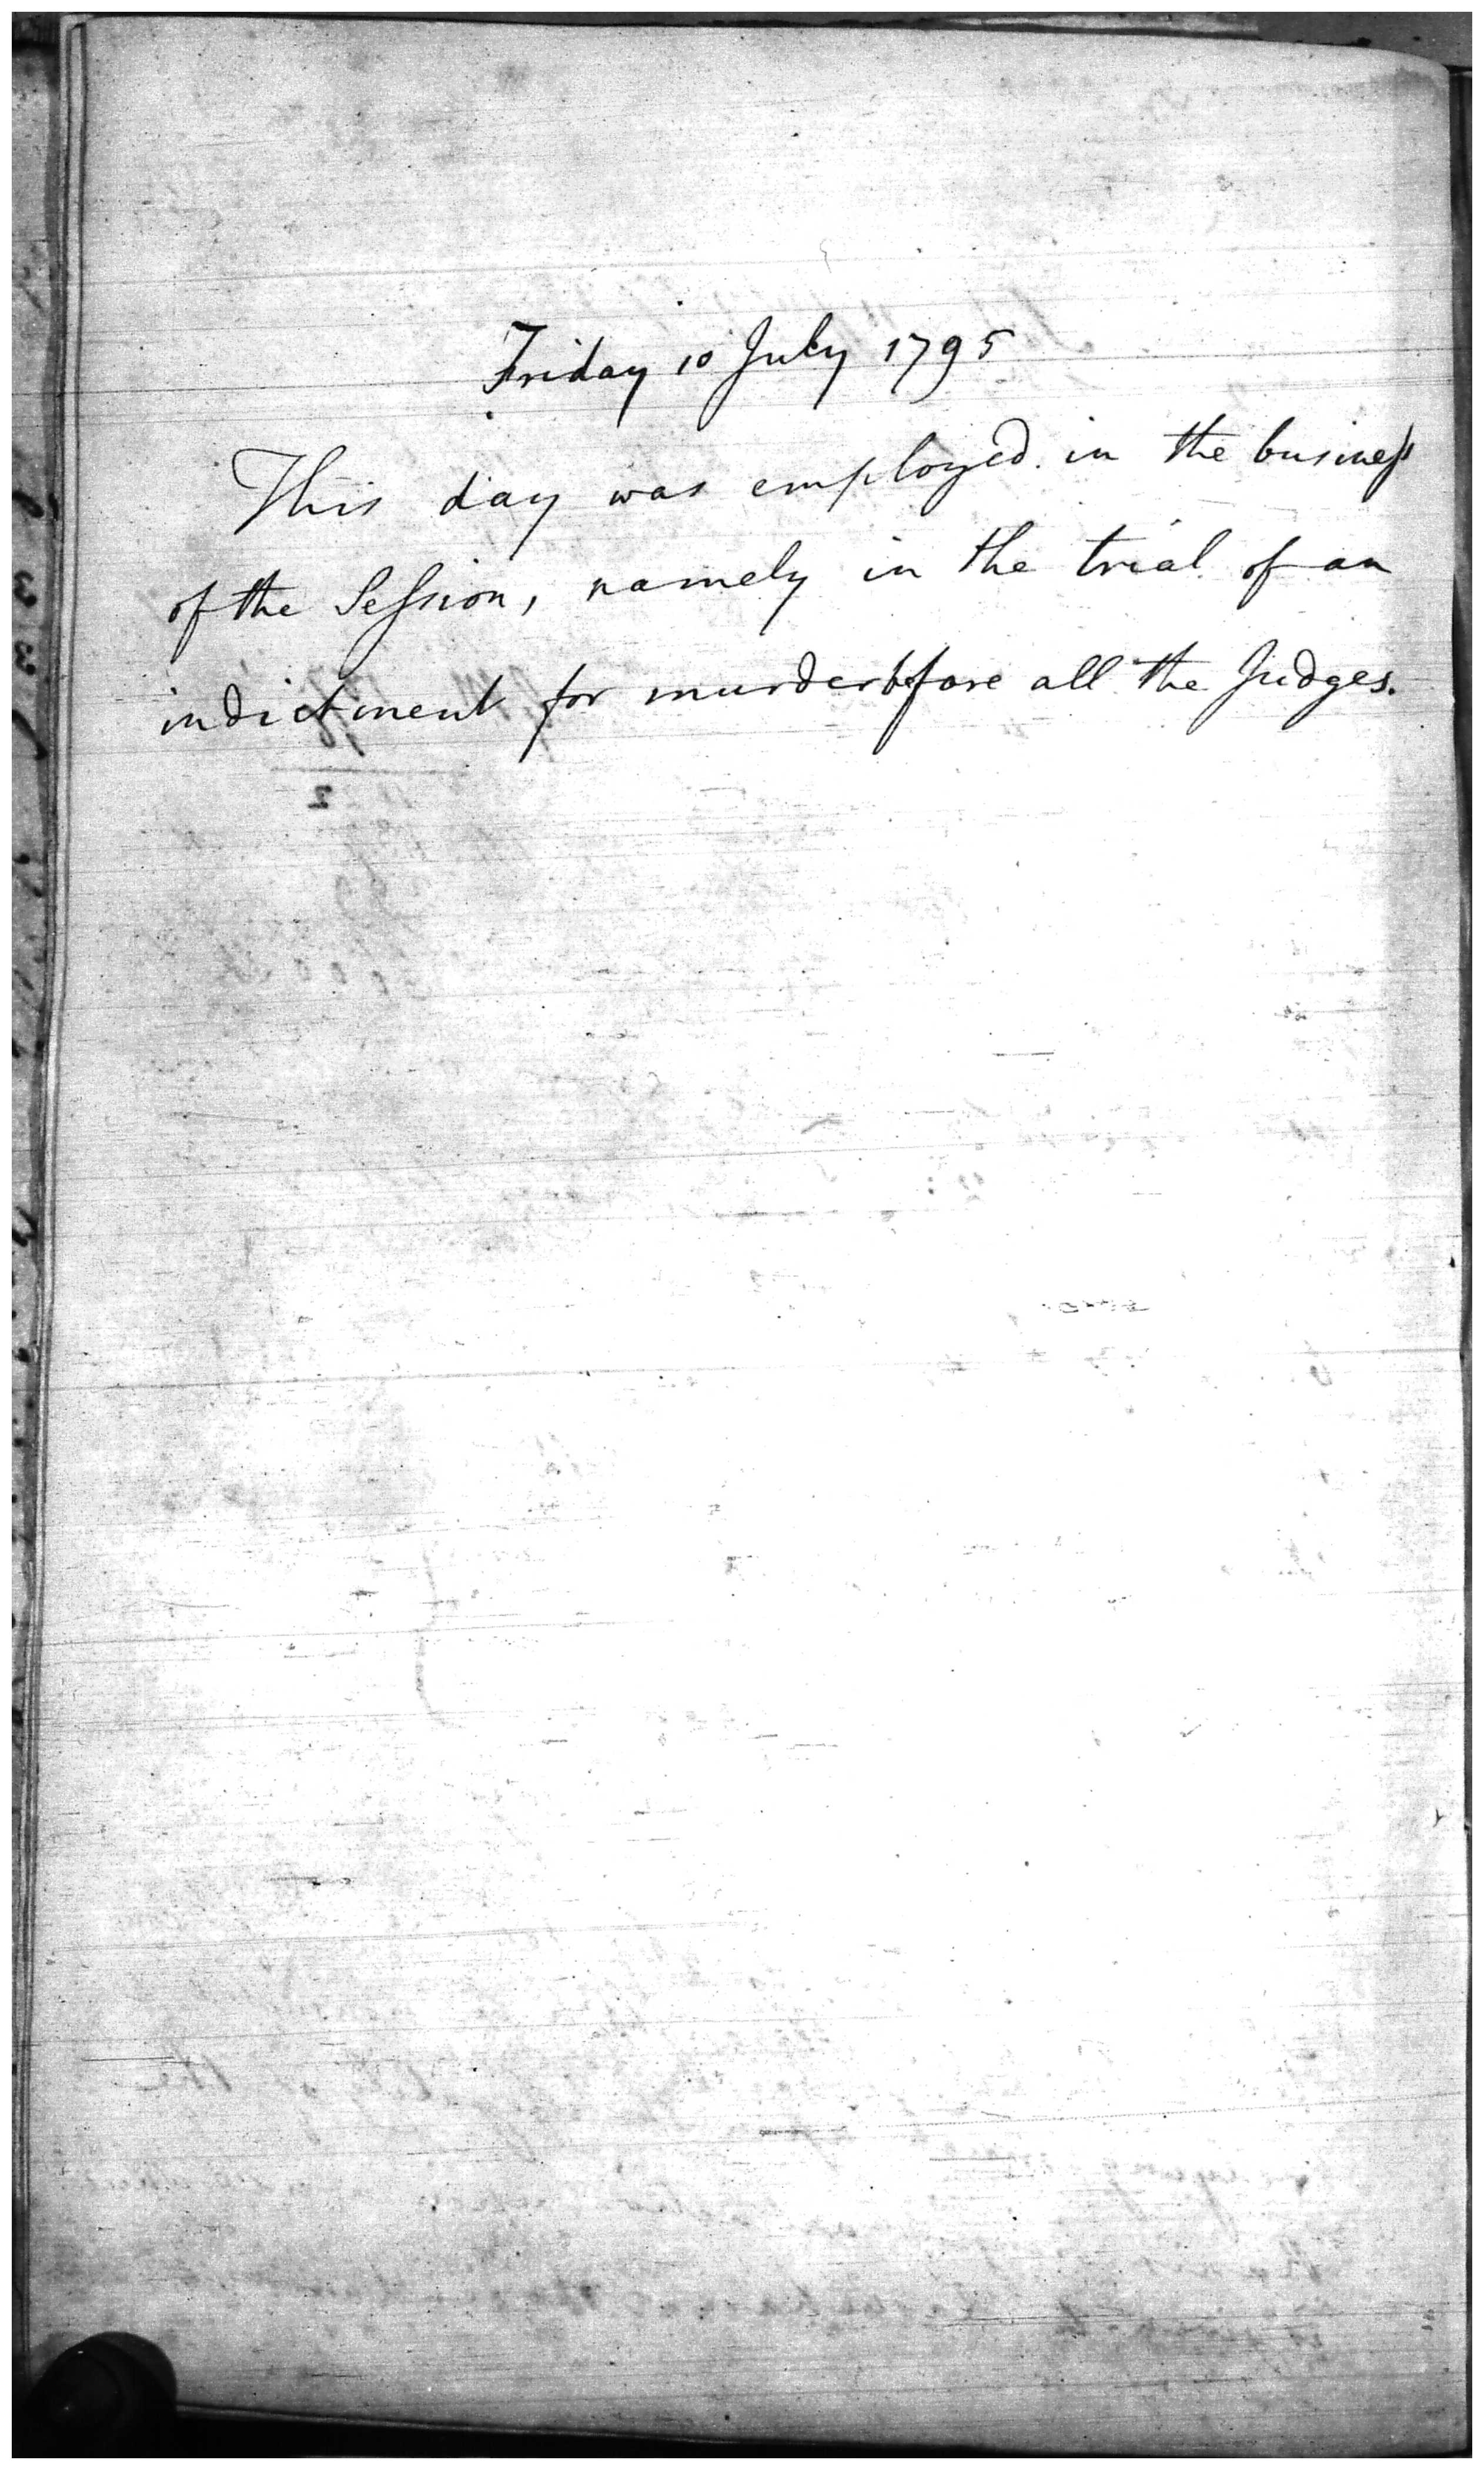 Friday 10 July 1795
This day was employed in the business
of the Session, namely in the trial of an
indictment for murder before all the Judges.